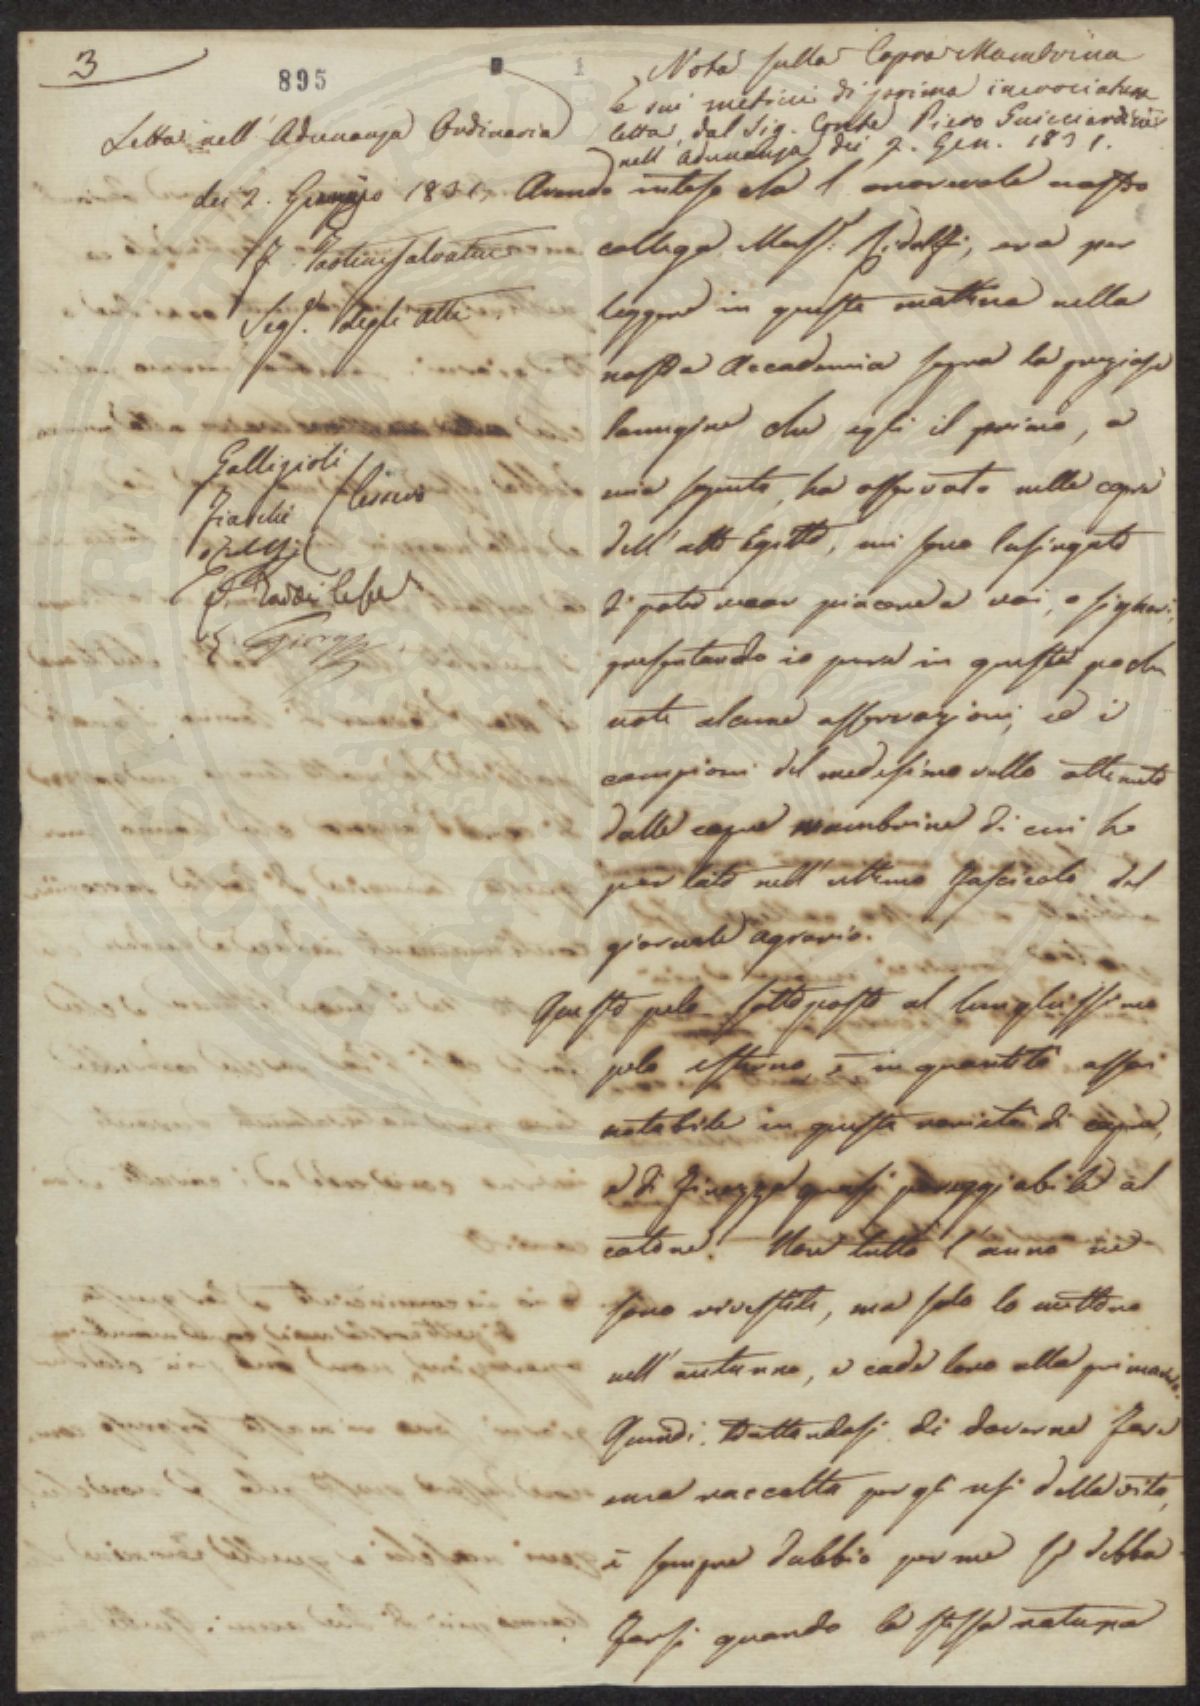 3
895
1
Nota sulla Capra Mambrina
e sui meticci di prima incrociatura
letta dal Sig. Conte Piero Guicciardini
nell'Adunanza dei 2. Gen. 1831.
Letta nell'Adunanza Ordinaria
dei 2. Gennajo 1831.
F. Tartini Salvatici
Seg.º degli Atti
Gallizioli
Ridolfi
E. Giorgj
Avendo inteso che l'onorevole nostro
collega March. Ridolfi, era per
leggere in questa mattina nella
nostra Accademia sopra la preziosa
lanugine che egli il primo, a
mia saputa, ha osservato nelle capre
dell'alto Egitto, mi sono lusingato
di poter recar piacere a voi, o signori,
presentando io pure in queste poche
note alcune osservazioni, ed i
campioni del medesimo vello ottenuto
dalle capre mambrine di cui ho
parlato nell'ultimo fascicolo del
giornale agrario.
Questo pelo sottoposto al lunghissimo
pelo esterno, è in quantità assai
notabile in questa varietà di capre,
e di finezza quasi pareggiabile al
cotone. Non tutto l'anno ne
sono rivestite, ma solo lo mettono
nell'autunno, e cade loro alla primavera.
Quindi trattandosi di doverne fare
una raccolta per gli usi della vita,
è sempre dubbio per me se debba
farsi quando la stessa natura